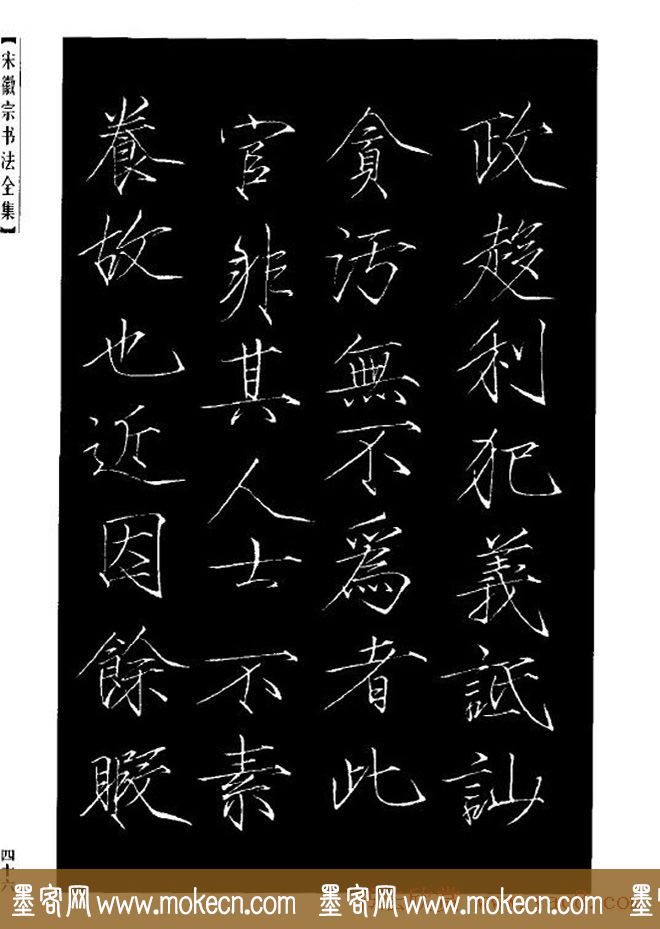 【宋徽宗书法全集】
政趍利犯義詆訕
貪汚無不爲者此
官非其人士不素
養故也近因餘暇
四十六
墨客网 www.mokecn.com 墨客网 www.mokecn.com